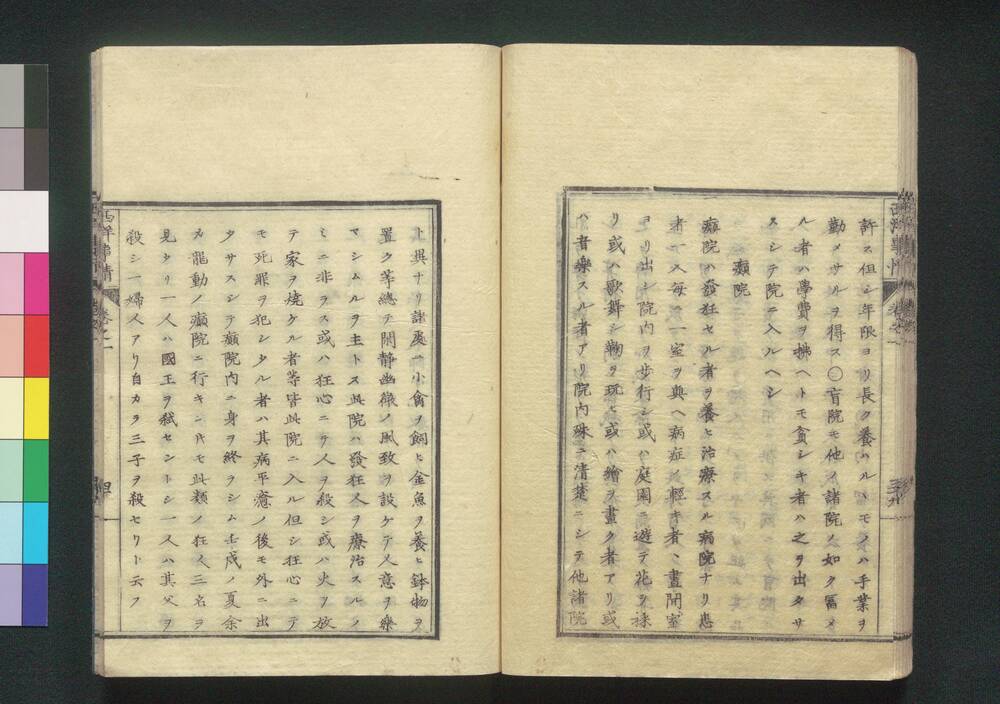 許ス但シ年限ヨリ長ク養ハルヽモノハ手業ヲ
勤メサルヲ得ス〇盲院モ他ノ諸院ノ如ク冨メ
ル者ハ學費ヲ拂ヘトモ貧シキ者ハ之ヲ出タサ
スシテ院ニ入ルヘシ
癲院
癲院ハ發狂セル者ヲ養ヒ治療スル病院ナリ患
者一人毎ニ一室ヲ與ヘ病症ノ輕キ者ハ晝間室
ヨリ出テ院内ヲ歩行シ或ハ庭園ニ遊テ花ヲ採
リ或ハ歌舞シ鞠ヲ玩ヒ或ハ繪ヲ畫ク者アリ或
ハ音樂スル者アリ院内殊ニ清楚ニシテ他諸院
ト異ナリ諸處ニ小禽ヲ飼ヒ金魚ヲ養ヒ鉢物ヲ
置ク等總テ閑静幽微ノ風致ヲ設ケテ人意ヲ樂
マシムルヲ主トス此院ハ發狂人ヲ療治スルノ
ミニ非ラス或ハ狂心ニテ人ヲ殺シ或ハ火ヲ放
テ家ヲ燒ケル者等皆此院ニ入ル但シ狂心ニテ
モ死罪ヲ犯シタル者ハ其病平癒ノ後モ外ニ出
タサスシテ癲院内ニ身ヲ終ラシム壬戌ノ夏余
カ龍動ノ癲院ニ行キシ時モ此類ノ狂人三名ヲ
見タリ一人ハ國王ヲ弑セントシ一人ハ其父ヲ
殺シ一婦人アリ自カラ三子ヲ殺セリト云フ
西洋事情
卷之一